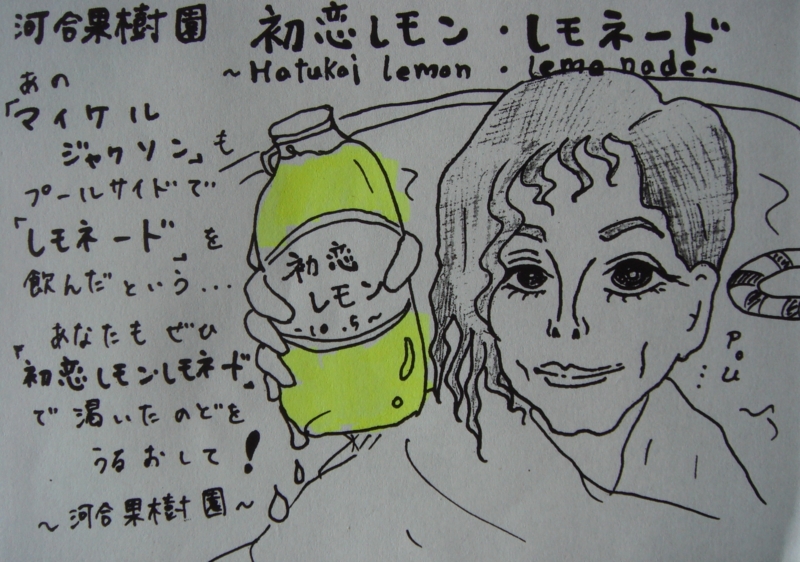 河合果樹園
初恋レモン・レモネード
~Hatukoi lemon・lemonade~
あの
「マイケル
ジャクソン」も
プールサイドで
「レモネード」を
飲んだという...
あなたもぜひ
「初恋レモンレモネード」
で渇いたのどを
うるおして!
~河合果樹園~
初恋
レモン
~10.5~